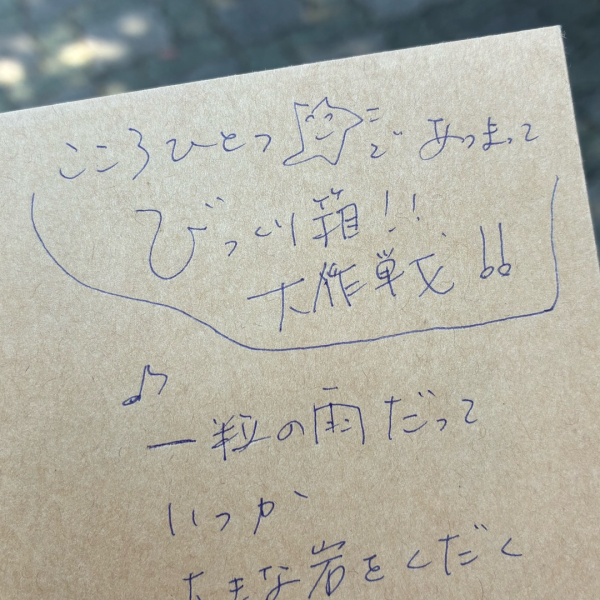 こころひとつ ここで あつまって
びっくり箱!!
大作戦!!
♪
一粒の雨だって
いつか
大きな岩をくだく